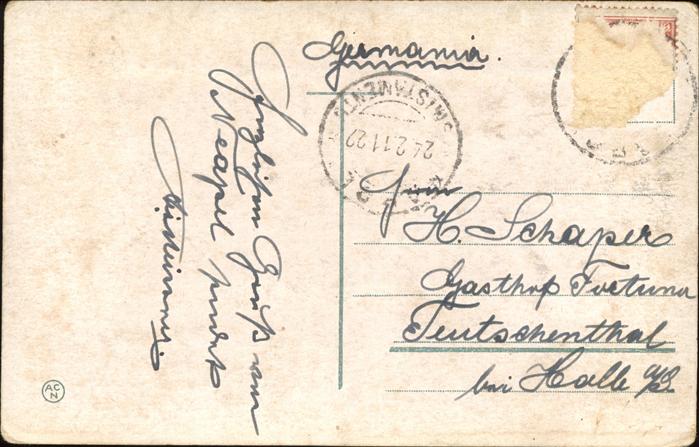 Germania.
SMISTAMENTO
24.2.11.22
Herzlichen Gruß aus
Neapel sendet
Herrn
H. Schaper
Gasthof Fortuna
Teutschenthal
bei Halle a/S.
ACN